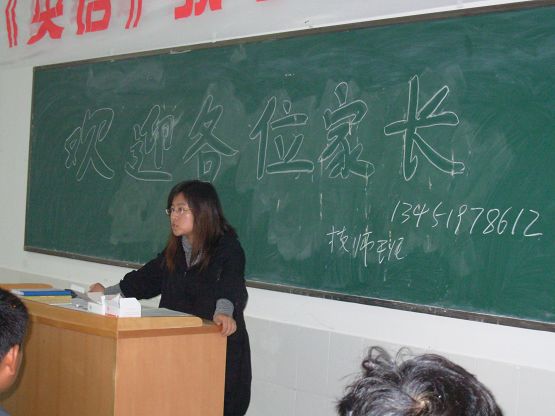 《英语》
欢迎各位家长
13451978612
技师